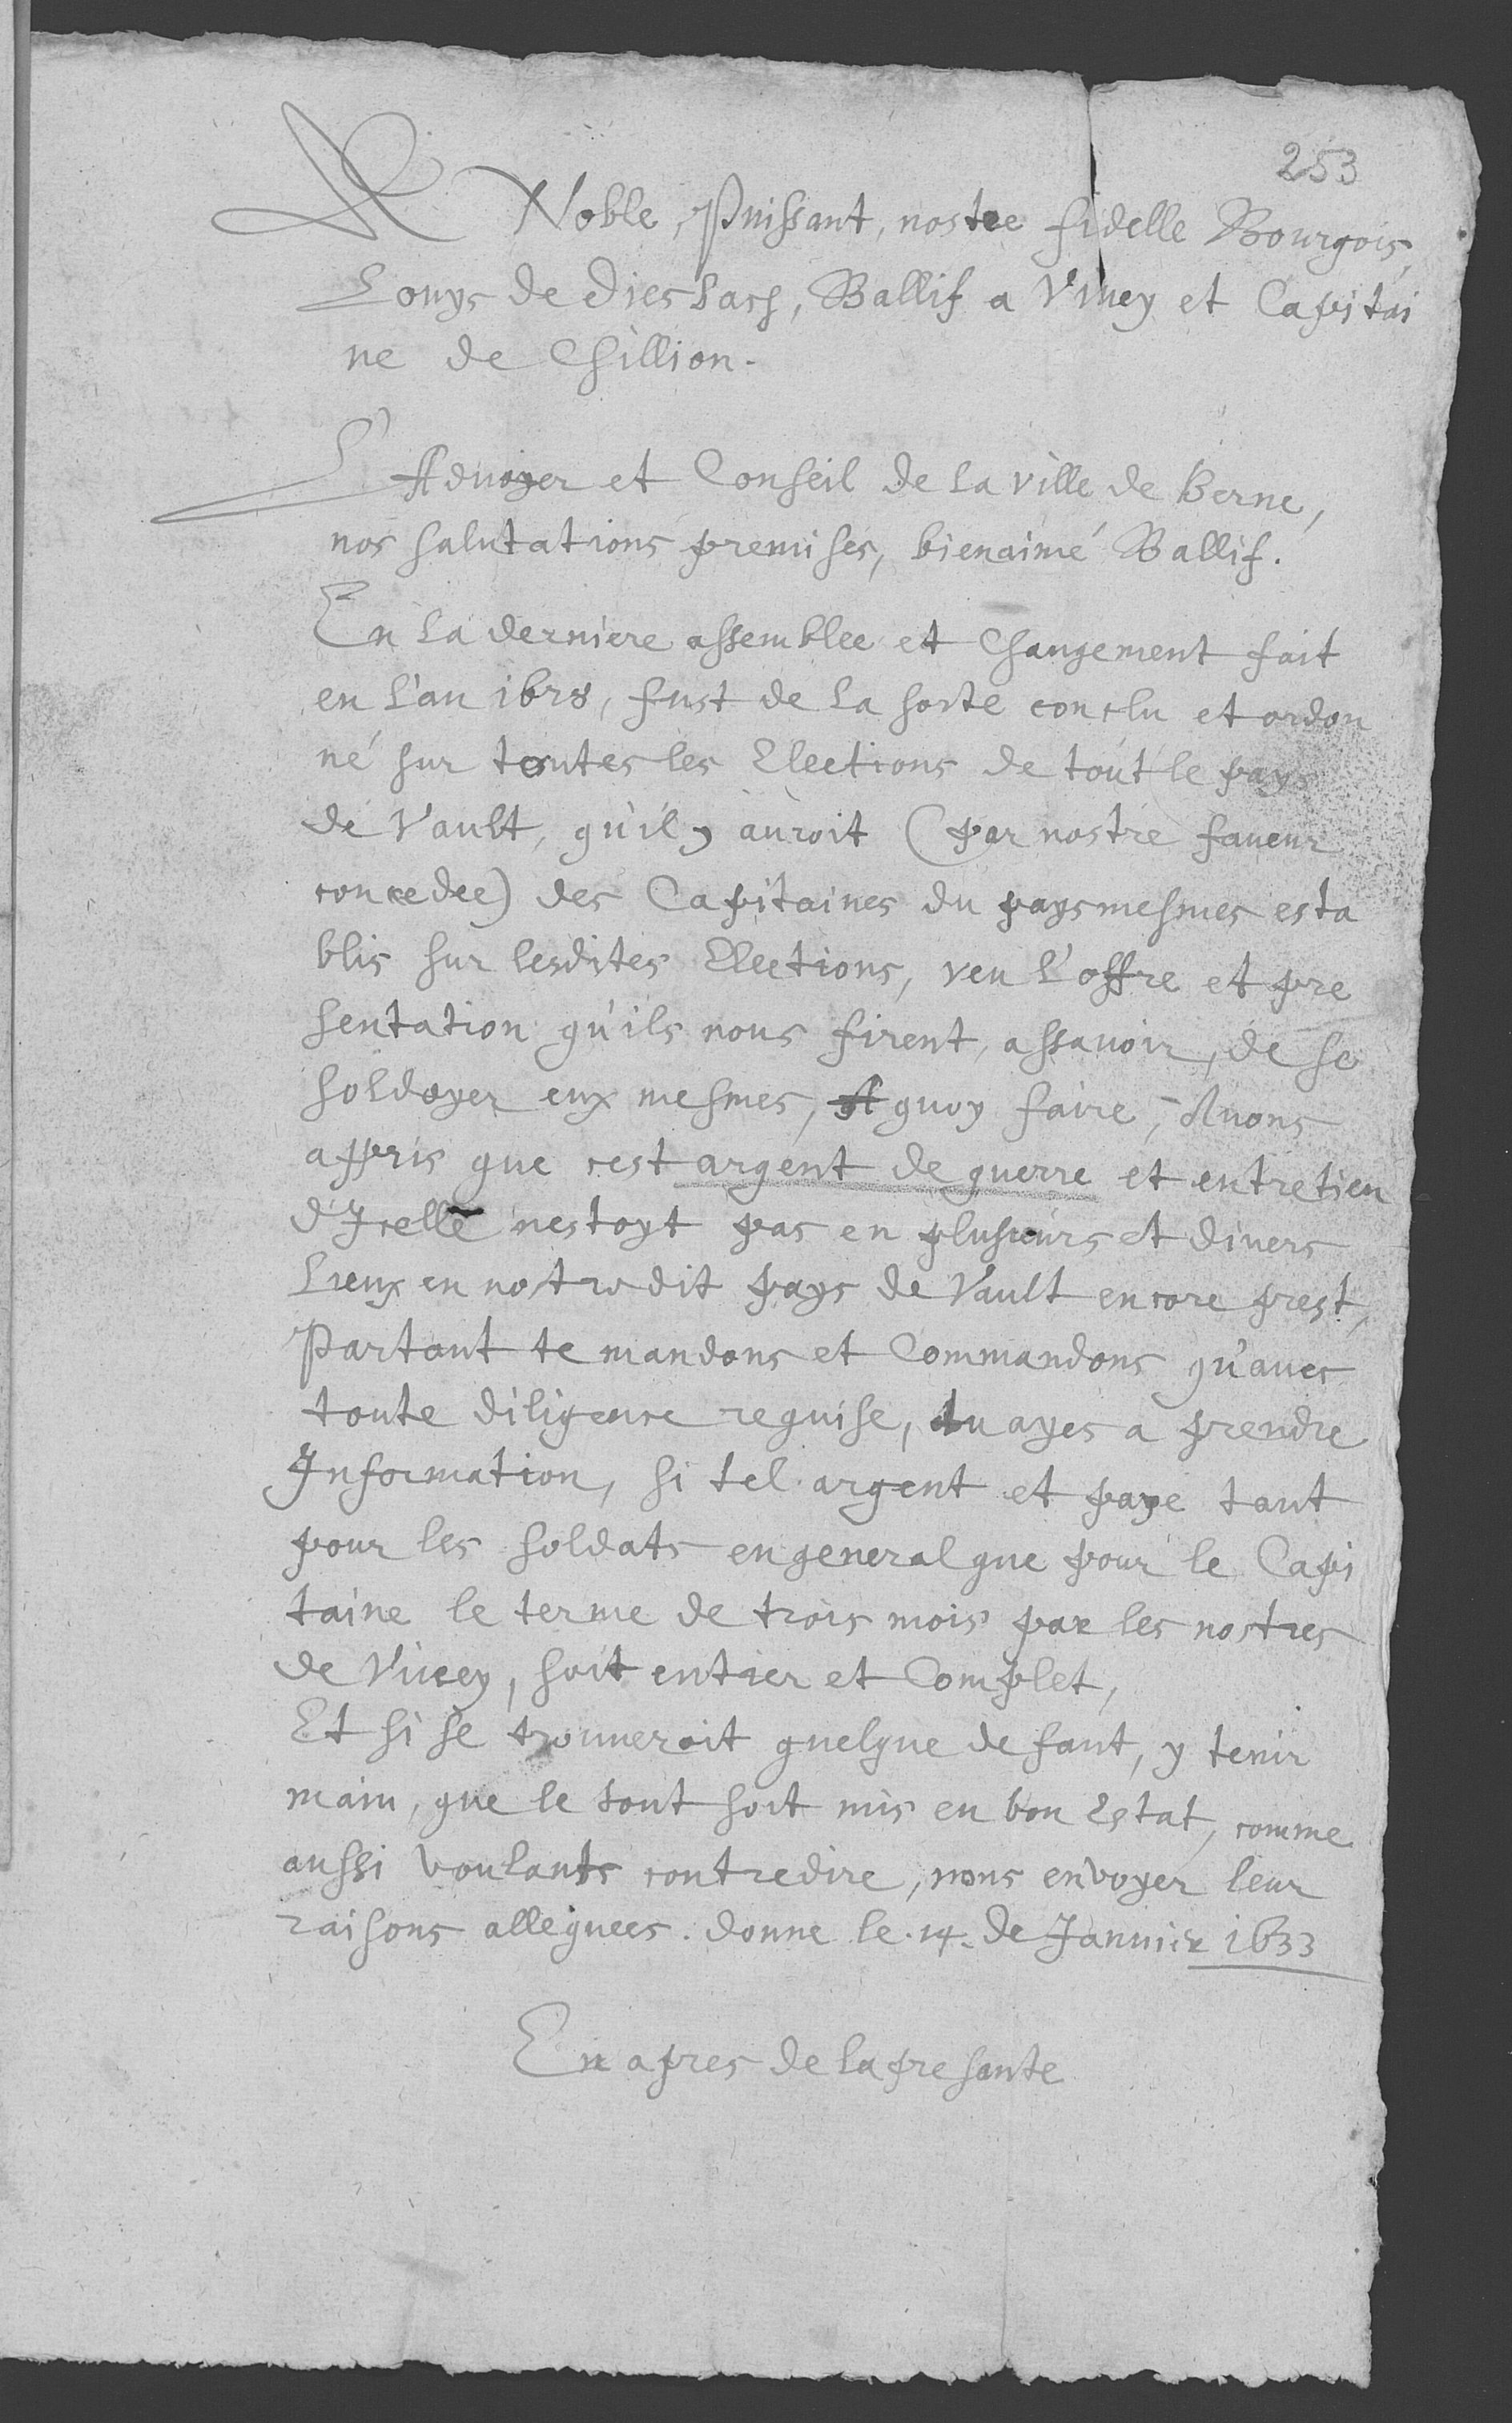 253
A Noble, Puissant, nostre fidelle Bourgois,
Louys de Diesbach, Ballif a Vivey et Capitai
ne de Chillion.
L'Advoyer et Conseil de la ville de Berne,
nos salutations premises, bienaimé Ballif.
En la derniere assemblee et changement fait
en l'an 1628, fust de la sorte conclu et ordon
né sur toutes les Elections de tout le pays
de Vault, qu'il y auroit (par nostre faveur
concedee) des Capitaines du pays mesmes esta
blis sur lesdites Elections, veu l'offre et pre
sentation qu'ils nous firent, assavoir, de se
soldoyer eux mesmes, A quoy faire, Avons
appris que cest argent de guerre et entretien
d'Icelle nestoyt pas en plusieurs et divers
Lieux en nostredit pays de Vault encore prest,
Partant te mandons et Commandons qu'avec
toute diligence requise, tu ayes a prendre
Information, si tel argent et paye tant
pour les soldats en general que pour le Capi
taine le terme de trois mois par les nostres
de Vivey, soit entier et Complet,
Et si se trouveroit quelque defaut, y tenir
main, que le tout soit mis en bon Estat, comme
aussi voulants contredire, nous envoyer leur
raisons alleguees. donne le 14. de Janvier 1633
En apres de la presante